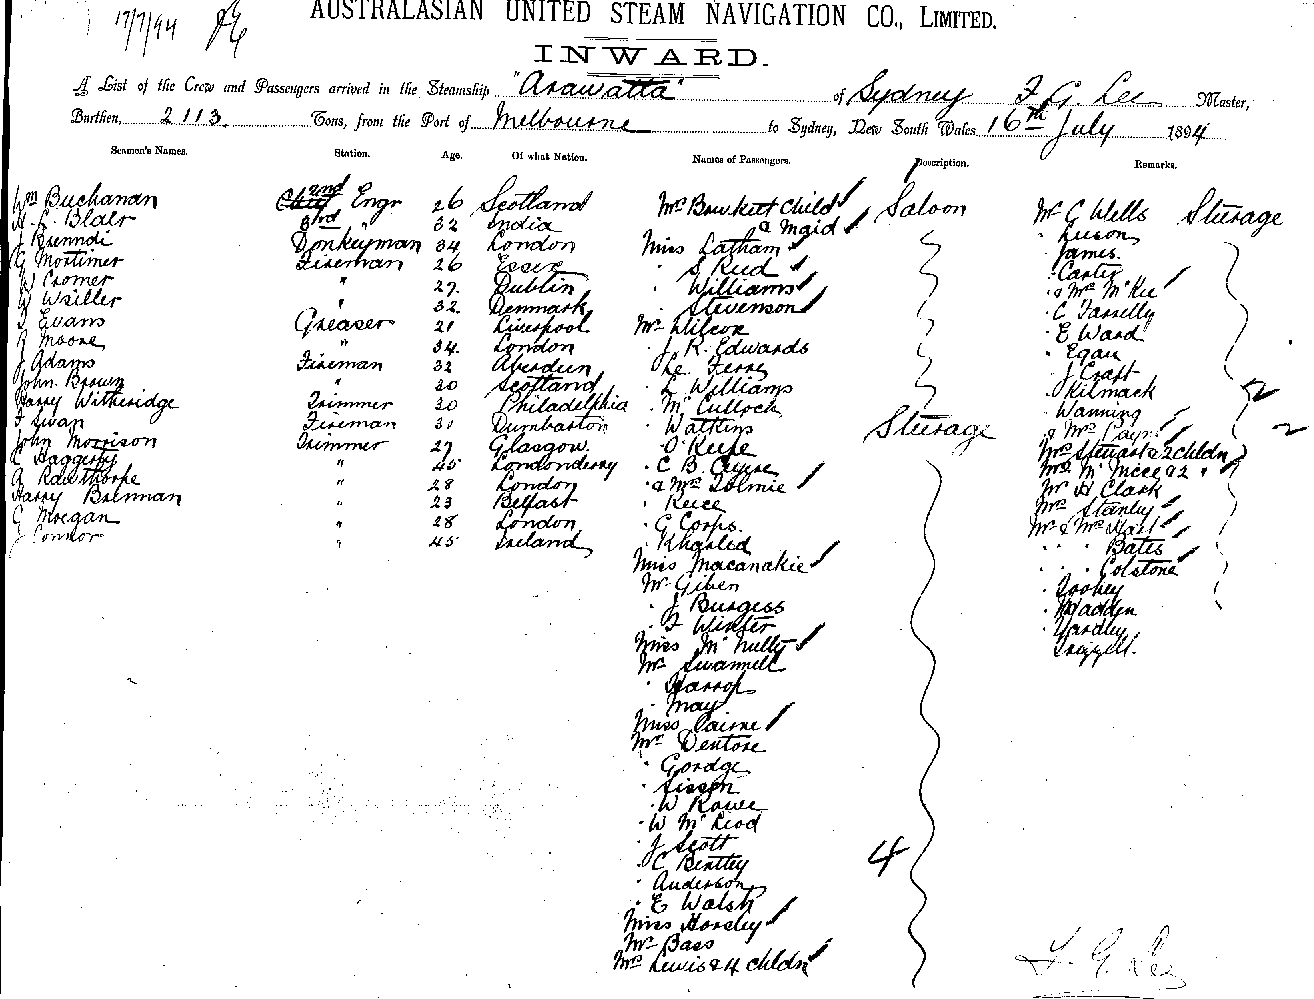 17/7/94
AUSTRALASIAN UNITED STEAM NAVIGATION CO., LIMITED.
INWARD.
A List of the Crew and Passengers arrived in the Steamship "Arawatta" of Sydney F. G. Lee Master,
Burthen, 2113 Tons, from the Port of Melbourne to Sydney, New South Wales 16th July 1894
Seamen's Names. Station. Age. Of what Nation.
Wm Buchanan 2nd Engr 26 Scotland
Blair 3rd " 32 India
J Brenndi Donkeyman 34 London
G Mortimer Fireman 26 Essex
Cromer " 27. Dublin
W Weiller " 32. Denmark
Evans Greaser 21 Liverpool
Moore " 34. London
J Adams Fireman 32 Aberdeen
John Brown " 20 Scotland
Harry Witheridge Trimmer 30 Philadelphia
F Swan Fireman 31 Dumbarton
John Morrison Trimmer 27 Glasgow
C Haggerty " 45 Londonderry
A Rawthorpe " 28 London
Harry Brennan " 23 Belfast
G Morgan " 28 London
J Connor " 45 Ireland
Names of Passengers. Description.
Mrs Bowkett Child Saloon
& Maid
Miss Latham
" S Reid
" Williams
" Stevenson
Mr Wilcox
" J. R. Edwards
" Le Ferre
" L Williams
" McCulloch
" Watkins Steerage
" O'Keefe
" C B Cruise
" & Mrs Tolmie
" Reece
" G Corps.
" Kharled
Miss Macanakie
Mr Giben
" J Burgess
" F Winter
Miss McNulty
Mr Swannell
" Harrop
" May
Miss Cairne
Mr Dentore
" Gordge
" Sissen
" W Rowe
" W McLeod
" J Scott
" C Bentley 4
" Anderson
" E Walsh
Miss Horsley
Mr Bass
Mrs Lewis & 4 Chldn
Remarks.
Mr G Wells Steerage
" Leeson
" James.
" Carter
" & Mrs McKee
" C Farrelly
" E Ward
" Egan
" J Craft
" Kilmack 2
" Wanning
" & Mrs Payne 2
Mrs Steuart & 2 chldn
Mrs McNiece & 2 "
Mr H Clark
Mrs Stanley
Mr & Mrs Hart
" " " Bates
" " " Colstone
" Toohey
" Madden
" Yardley
" Treggell.
F. G. Lee